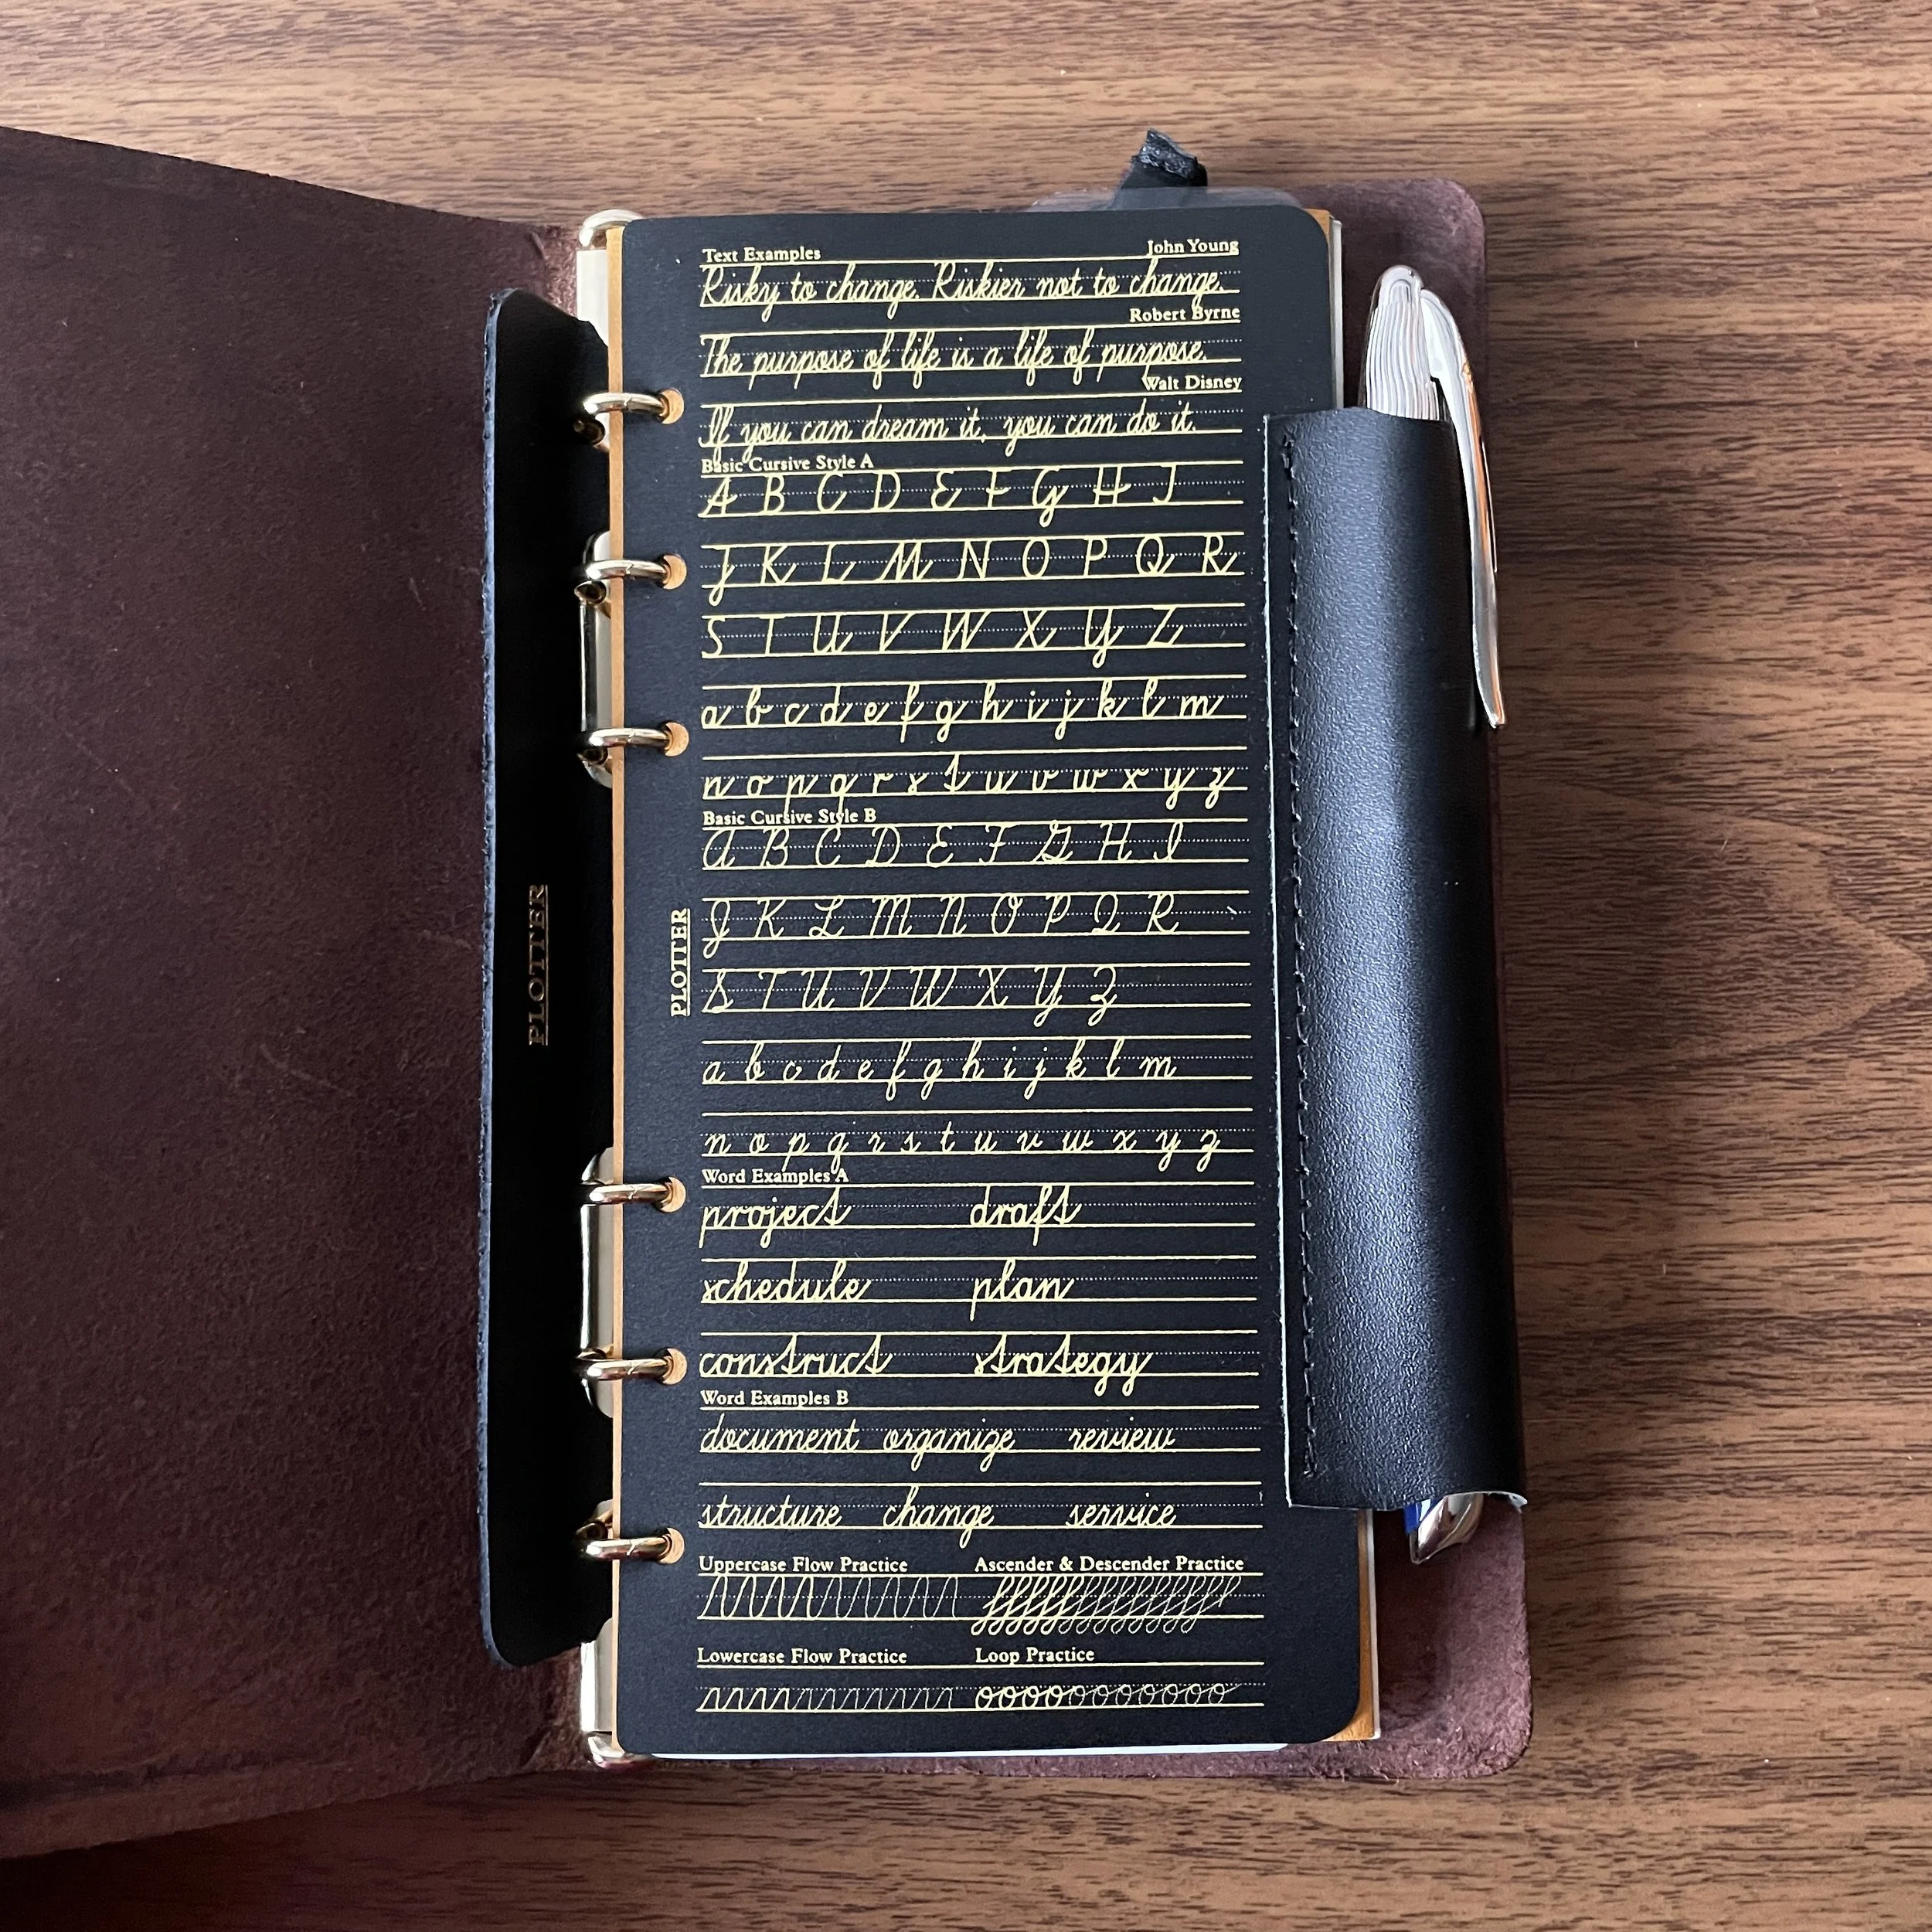 Text Examples John Young
Risky to change. Riskier not to change.
Robert Byrne
The purpose of life is a life of purpose.
Walt Disney
If you can dream it, you can do it.
Basic Cursive Style A
A B C D E F G H I
J K L M N O P Q R
S T U V W X Y Z
a b c d e f g h i j k l m
n o p q r s t u v w x y z
Basic Cursive Style B
A B C D E F G H I
J K L M N O P Q R
S T U V W X Y Z
a b c d e f g h i j k l m
n o p q r s t u v w x y z
Word Examples A
project draft
schedule plan
construct strategy
Word Examples B
document organize review
structure change service
Uppercase Flow Practice Ascender & Descender Practice
Lowercase Flow Practice Loop Practice
PLOTTER
PLOTTER